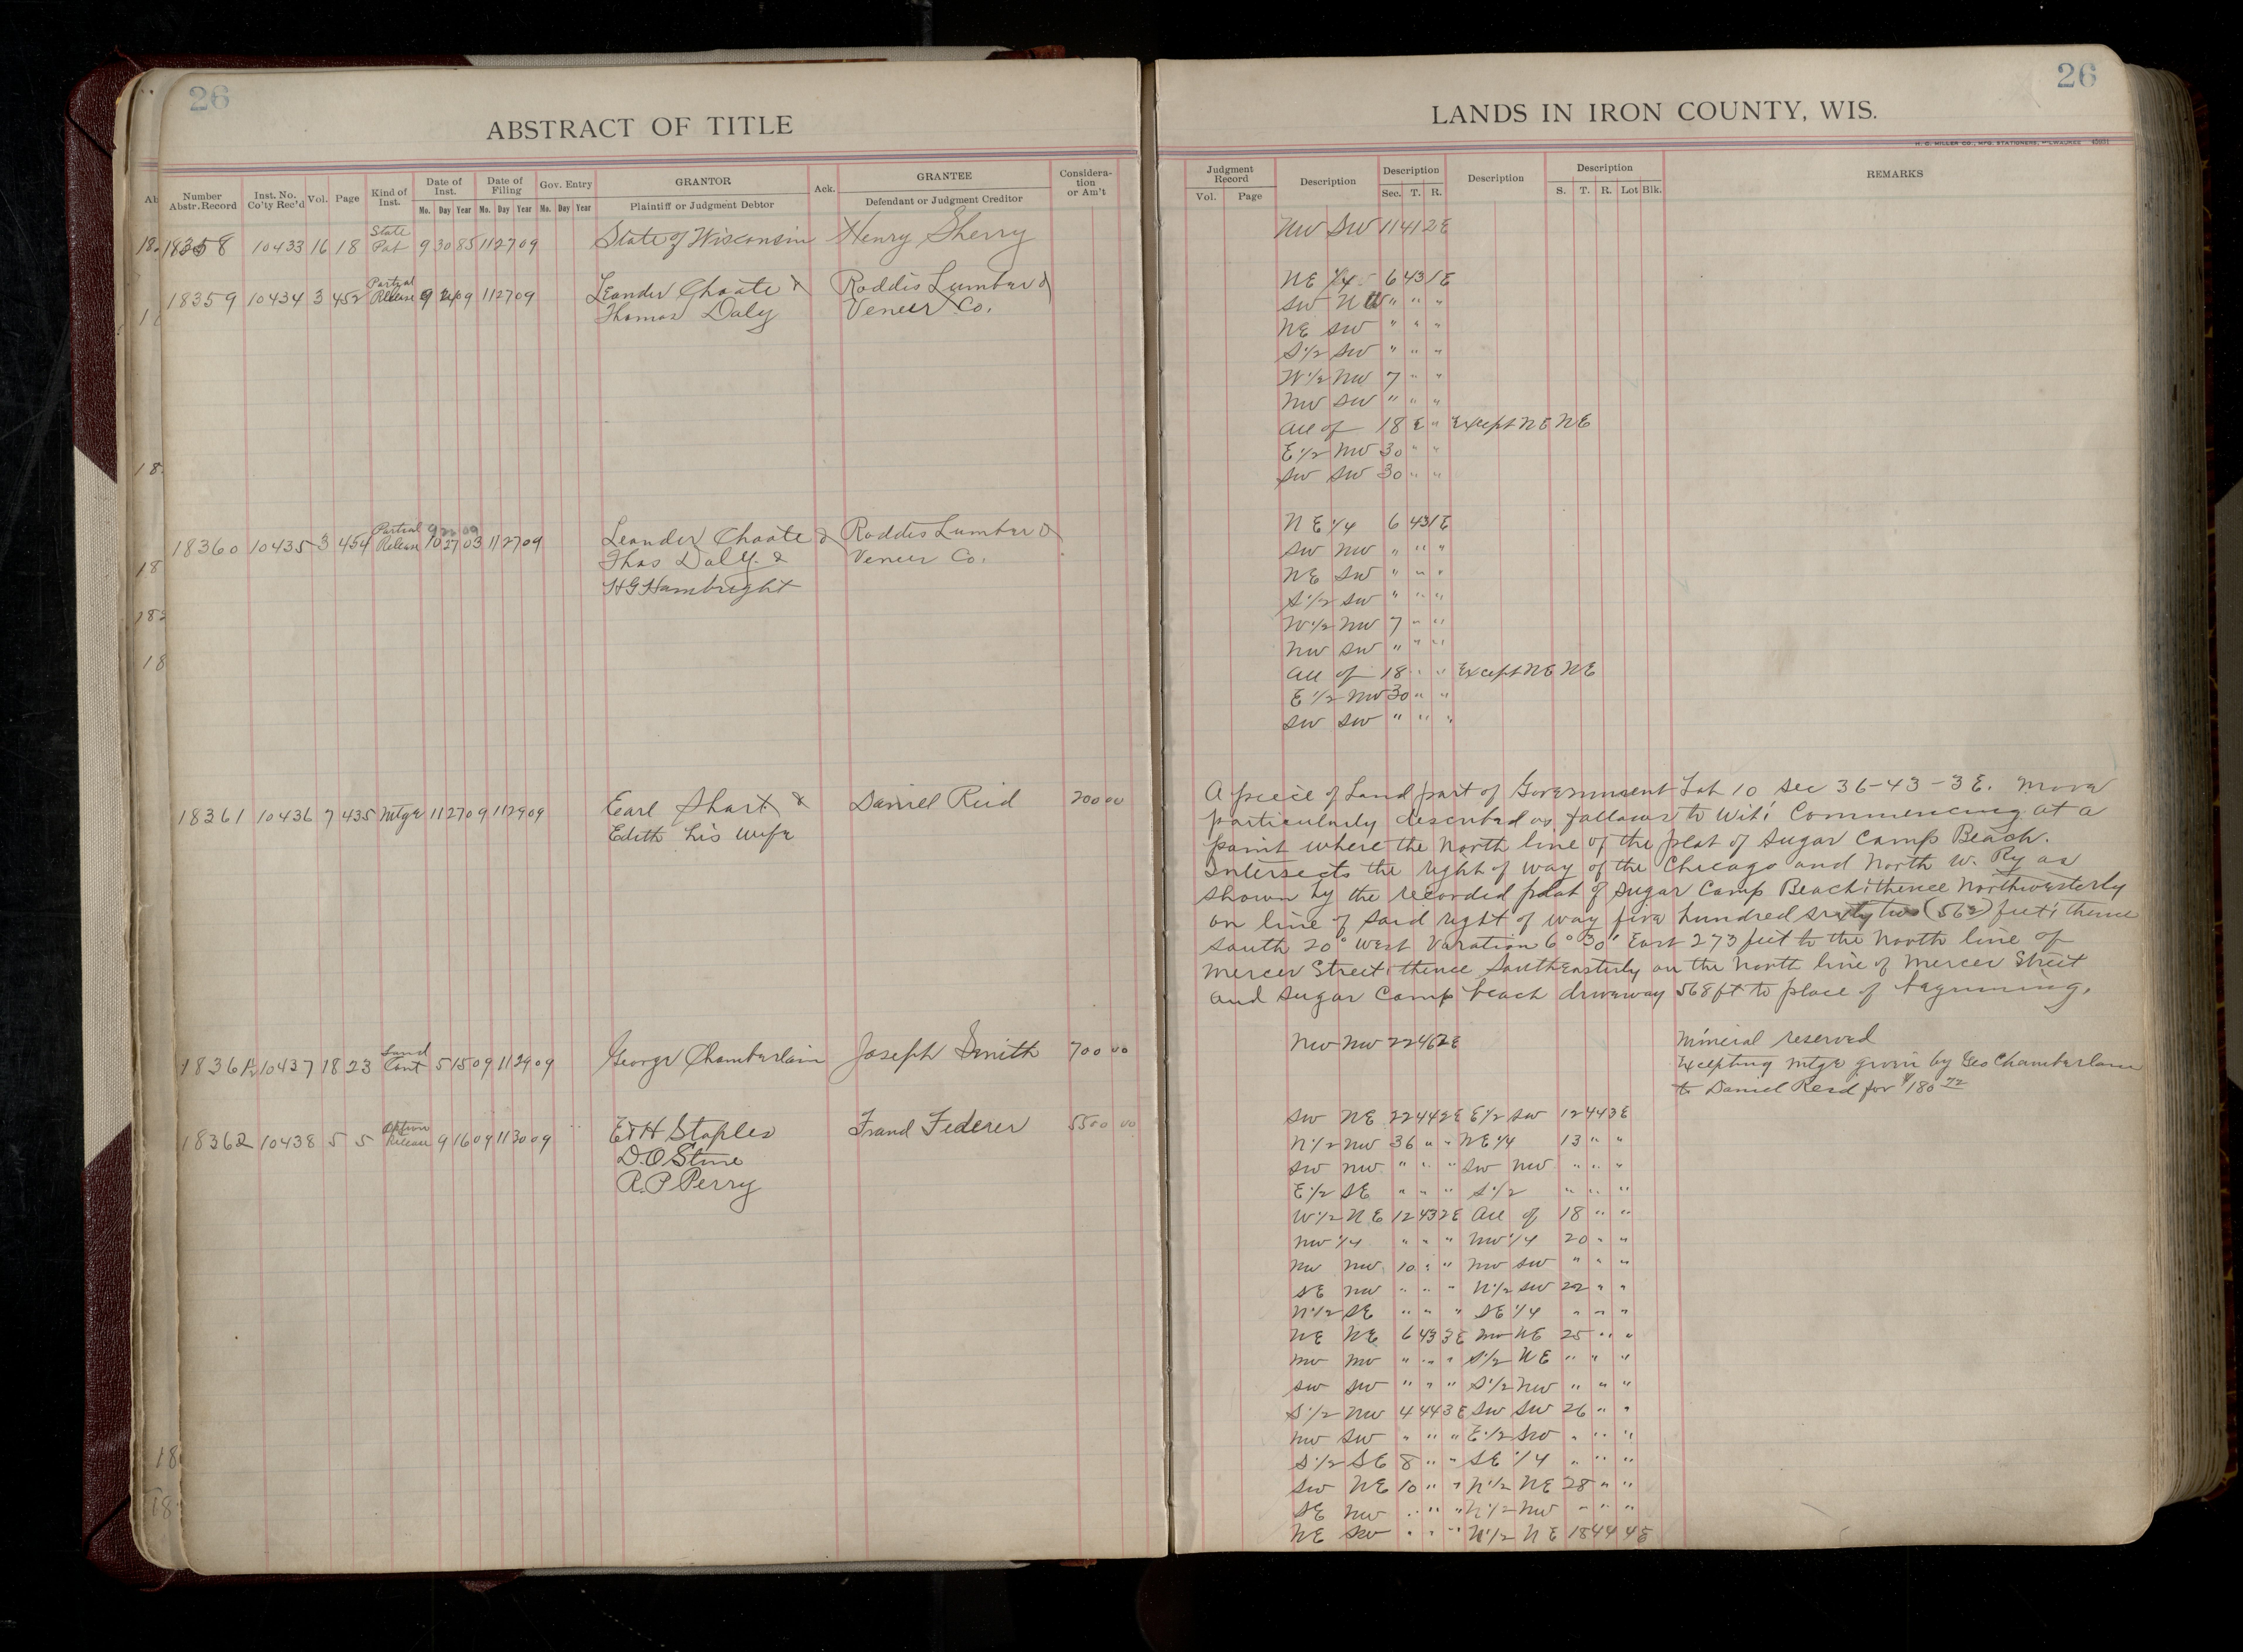 26
ABSTRACT OF TITLE
Number Abstr. Record
Inst. No. Co'ty Rec'd
Vol.
Page
Kind of Inst.
Date of Inst.
Mo. Day Year
Date of Filing
Mo. Day Year
Gov. Entry
Mo. Day Year
GRANTOR
Plaintiff or Judgment Debtor
Ack.
GRANTEE
Defendant or Judgment Creditor
Considera-
tion
or Am't
18358 10433 16 18 State Pat 9 30 85 11 27 09 State of Wisconsin Henry Sherry
18359 10434 3 452 Partial Release 9 09 11 27 09 Leander Choate & Roddis Lumber &
Thomas Daly Veneer Co.
18360 10435 3 454 Partial Release 10 27 03 11 27 09 Leander Choate & Roddis Lumber &
Thos Daly & Veneer Co.
H G Hambright
18361 10436 7 435 Mtge 11 27 09 11 29 09 Earl Short & Daniel Reid 200 00
Edith his wife
18361½ 10437 18 23 Land Cont 5 15 09 11 29 09 George Chamberlain Joseph Smith 700 00
18362 10438 5 5 Option Release 9 16 09 11 30 09 E H Staples Frand Federer 5500 00
D.O Stine
R. P Perry
26
LANDS IN IRON COUNTY, WIS.
H. G. MILLER CO., MFG. STATIONERS, MILWAUKEE
Judgment Record
Vol. Page
Description
Description
Sec. T. R.
Description
Description
S. T. R. Lot Blk.
REMARKS
NW SW 11 41 2E
NE ¼ 6 43 1E
SW NW " " "
NE SW " " "
S ½ SW " " "
W ½ NW 7 " "
NW SW " " "
All of 18 " Except NE NE
E ½ NW 30 " "
SW SW 30 " "
NE ¼ 6 43 1E
SW NW " " "
NE SW " " "
S ½ SW " " "
W ½ NW 7 " "
NW SW " " "
All of 18 " " Except NE NE
E ½ NW 30 " "
SW SW " " "
A piece of Land part of Government Lot 10 Sec 36-43-3E. More
particularly described as follows to wit; Commencing at a
point where the North line of the plat of Sugar Camp Beach.
Intersects the right of way of the Chicago and North W. Ry as
shown by the recorded plat of Sugar Camp Beach; thence Northwesterly
on line of said right of way five hundred sixty two (562) feet; thence
South 20° West Varation 6° 30' East 273 feet to the North line of
Mercer Street; thence Southeasterly on the North line of Mercer Street
and Sugar Camp beach driveway 568 ft to place of beginning.
NW NW 22 46 2E Mineral reserved
Excepting Mtge given by Geo Chamberlain
to Daniel Reid for $180 72
SW NE 22 44 2E E ½ SW 12 44 3E
N ½ NW 36 " " NE ¼ 13 " "
SW NW " " " SW NW " " "
E ½ SE " " " S ½ " " "
W ½ NE 12 43 2E All of 18 " "
NW ¼ " " " NW ¼ 20 " "
NW NW 10 " " NW SW " " "
SE NW " " " N ½ SW 22 " "
N ½ SE " " " SE ¼ " " "
NE NE 6 43 3E NW NE 25 " "
NW NW " " " S ½ NE " " "
SW SW " " " S ½ NW " " "
S ½ NW 4 44 3E SW SW 26 " "
NW SW " " " E ½ SW " " "
S ½ SE 8 " " SE ¼ " " "
SW NE 10 " " N ½ NE 28 " "
SE NW " " " N ½ NW " " "
NE SW " " " N ½ NE 18 44 4E